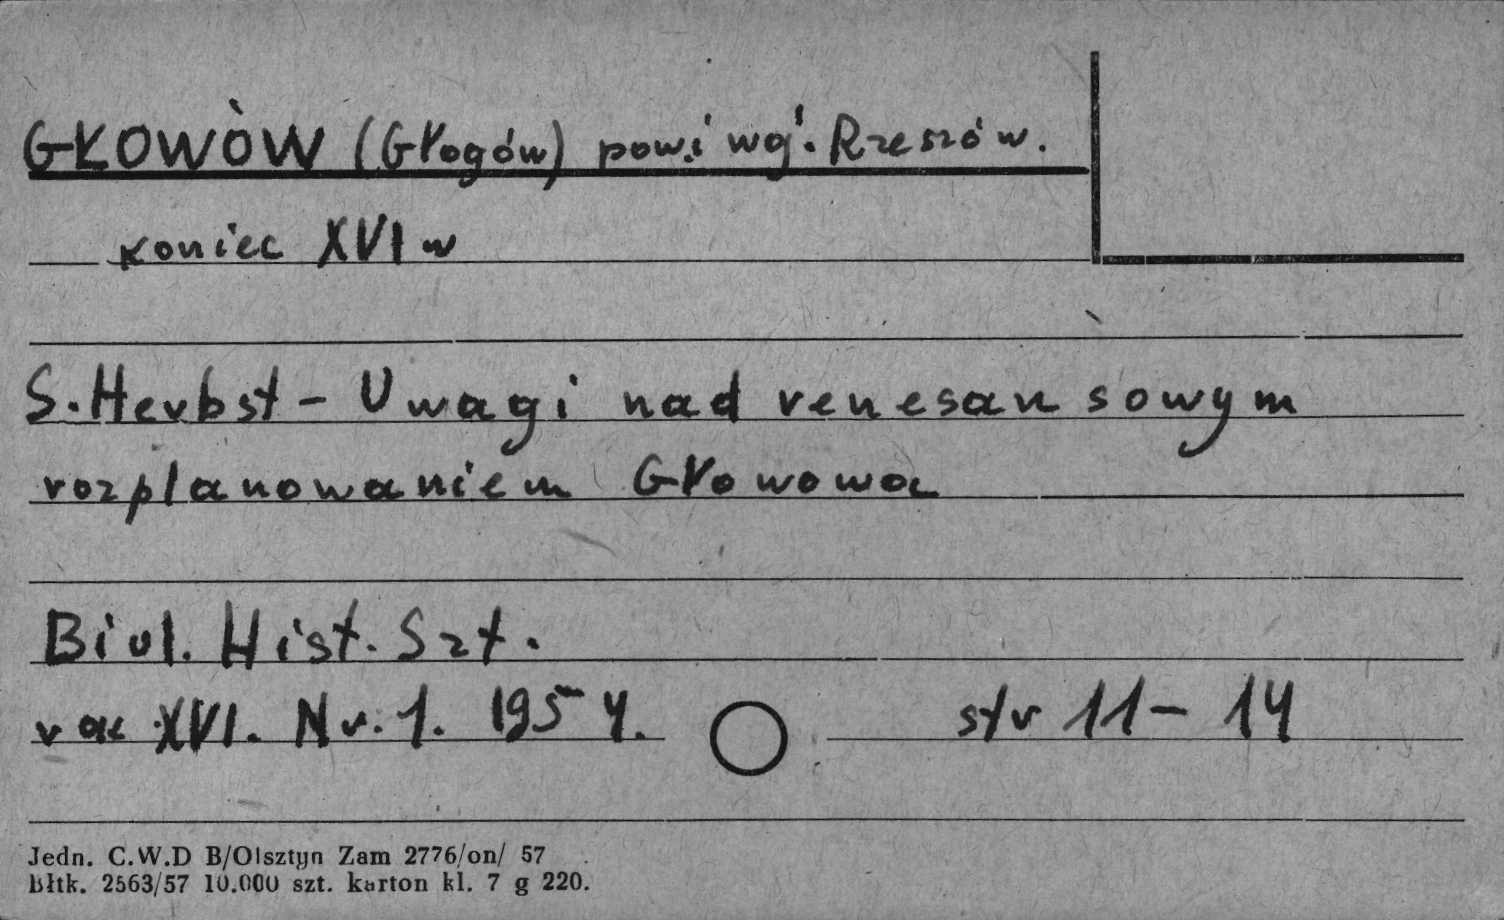 GŁOWÒW (Głogów) pow.i woj. Rzeszów.
koniec XVI w
S. Herbst - Uwagi nad renesansowym
rozplanowaniem Głowowa
Biul. Hist. Szt.
rok XVI. Nr. 1. 1954. str 11-14
Jedn. C.W.D B/Olsztyn Zam 2776/on/ 57
Błtk. 2563/57 10.000 szt. karton kl. 7 g 220.